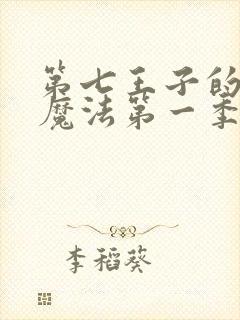 第七王子的
魔法第一季
李稻葵